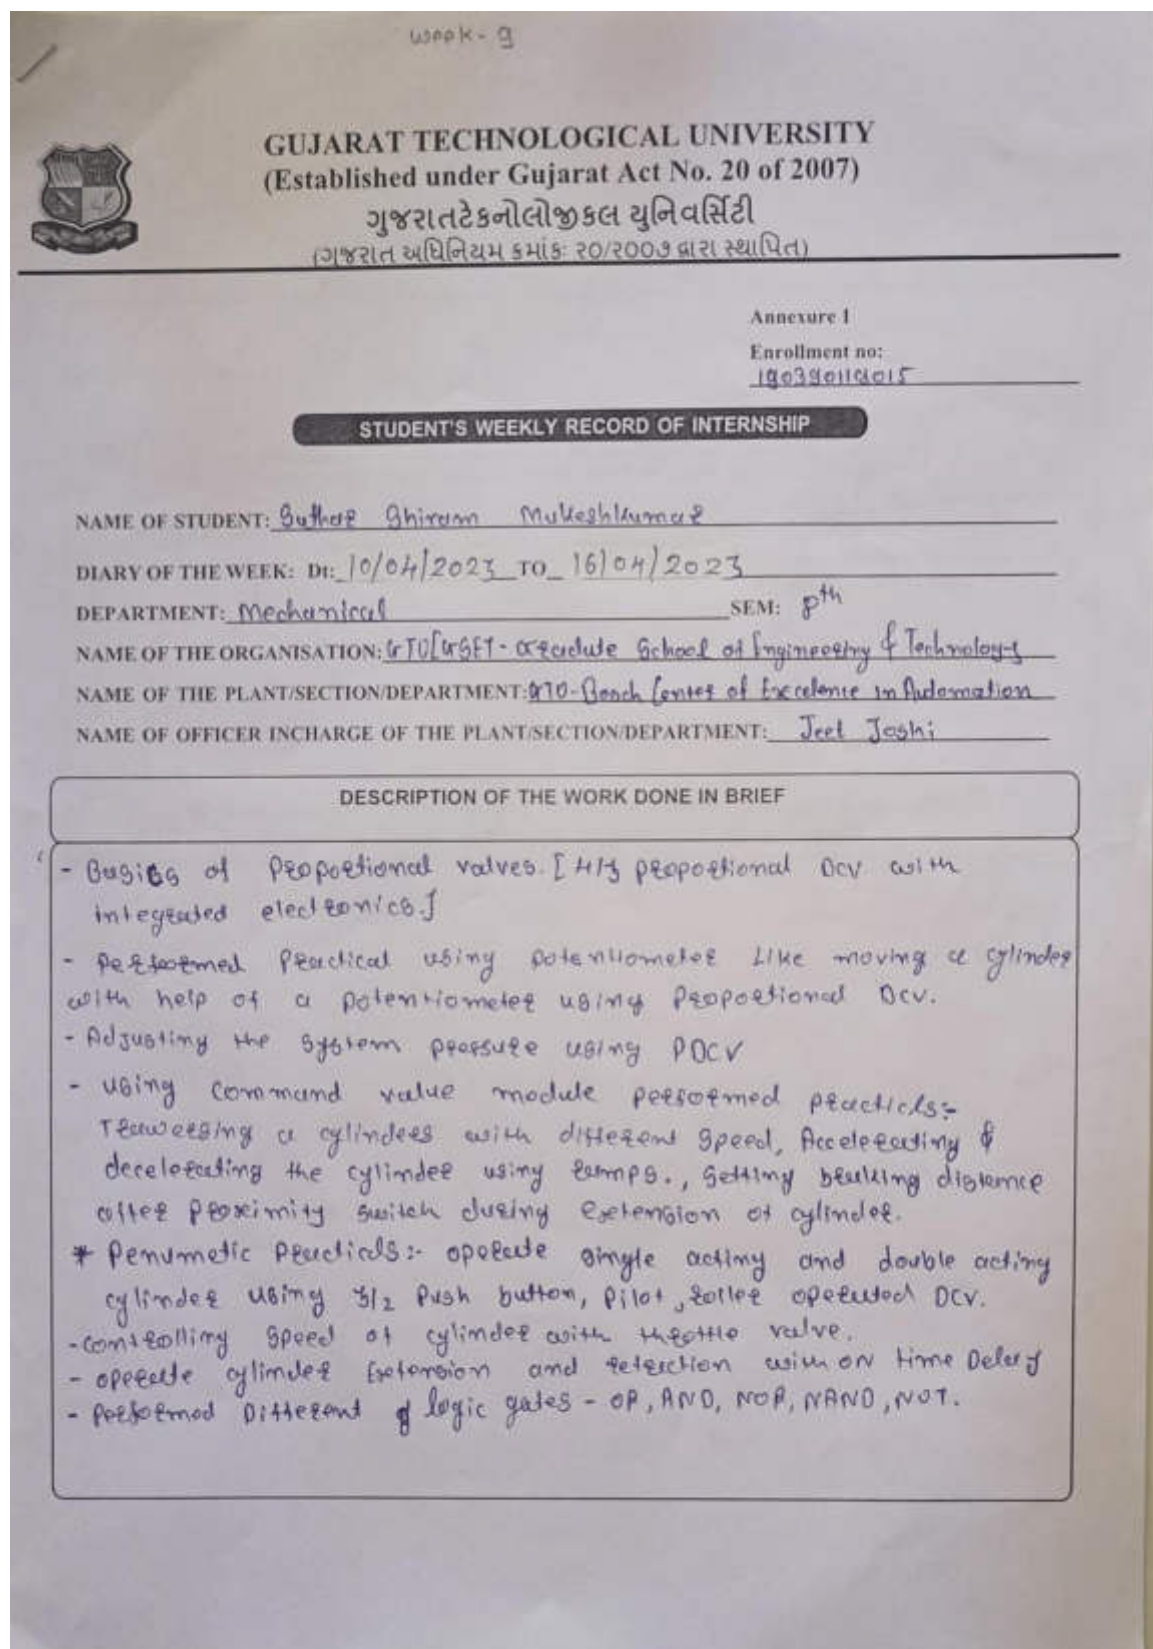 Week - 9
GUJARAT TECHNOLOGICAL UNIVERSITY
(Established under Gujarat Act No. 20 of 2007)
ગુજરાતટેકનોલોજીકલ યુનિવર્સિટી
(ગુજરાત અધિનિયમ ક્રમાંકઃ ૨૦/૨૦૦૭ દ્વારા સ્થાપિત)
Annexure 1
Enrollment no:
STUDENT'S WEEKLY RECORD OF INTERNSHIP
NAME OF STUDENT: Suthar Shiram Mukeshkumar
DIARY OF THE WEEK: Dt: 10/04/2023 TO 16/04/2023
DEPARTMENT: Mechanical SEM: 8th
NAME OF THE ORGANISATION: GTU[GSET - Graduate School of Engineering & Technology
NAME OF THE PLANT/SECTION/DEPARTMENT: GTU-Bosch Center of Excelence in Automation
NAME OF OFFICER INCHARGE OF THE PLANT/SECTION/DEPARTMENT: Jeet Joshi
DESCRIPTION OF THE WORK DONE IN BRIEF
- Basics of Proportional valves. [4/3 proportional DCV with
integrated electronics.]
- Performed Practical using potentiometer Like moving a cylinder
with help of a potentiometer using Proportional DCV.
- Adjusting the system pressure using PDCV
- using command value module performed practicls:-
Traweersing a cylinders with different speed, Accelerating &
decelerating the cylinder using ramps., Setting braking distance
after proximity switch during extension of cylinder.
* Penumetic Practicals:- operate single acting and double acting
cylinder using 3/2 Push button, Pilot, roller operated DCV.
- Controlling Speed of cylinder with throttle valve.
- operate cylinder Extension and retraction with ON time Delay
- Performed Different of logic gates - OR, AND, NOR, NAND, NOT.